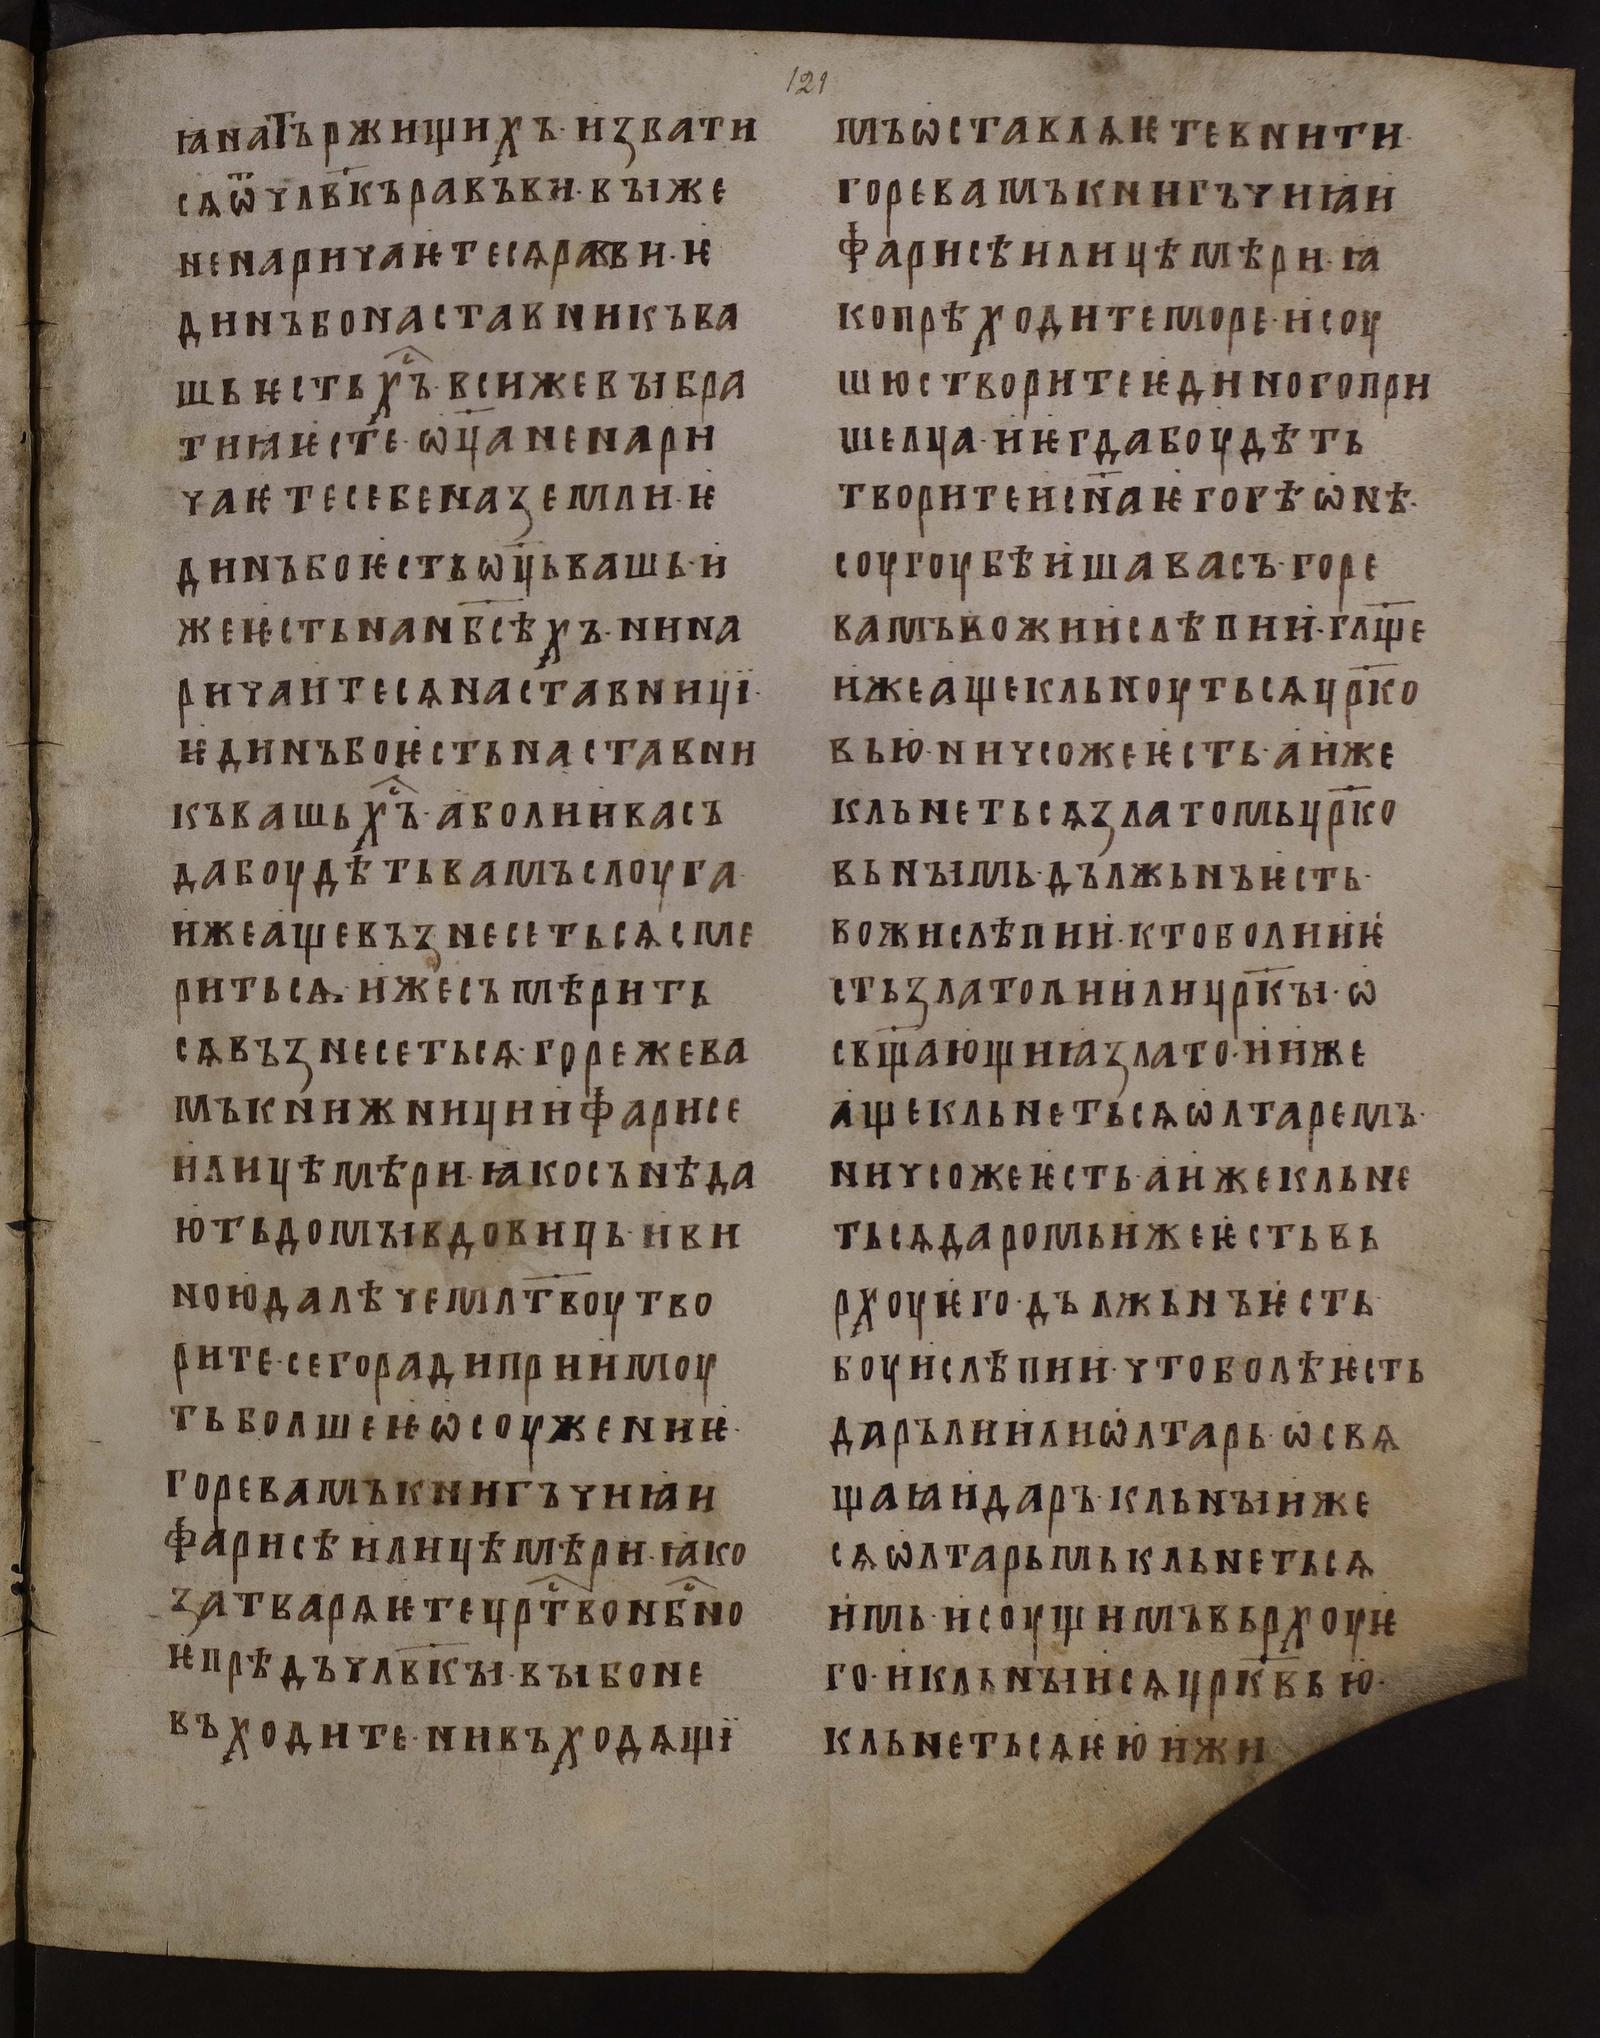 121
ꙗ на тържищихъ· и звати
сѧ ѿ члв҃къ равъви· вꙑ же
не наричаѥтесѧ равви· ѥ
динъ бо наставникъ ва
шь ѥсть х҃ъ· вси же вꙑ бра
тиꙗ ѥсте· ѡц҃а не нари
чаѥте себе на земли· ѥ
динъ бо ѥсть ѡц҃ь вашь· и
же ѥсть на нб҃сѣхъ· ни на
ричаитесѧ наставници·
ѥдинъ бо ѥсть наставни
къ вашь х҃ъ· а болии васъ
да боудѣть вамъ слоуга·
иже аще възнесетьсѧ сме
ритьсѧ· иже съмѣрить
сѧ възнесетьсѧ· горе же ва
мъ книжници и фарисе
и лицѣмѣри· ꙗко сънѣда
ють домꙑ вдовиць· и ви
ною далѣче мл҃твоу тво
рите· сего ради приимоу
ть болшеѥ ѡсоужениѥ·
горе вамъ книгъчиꙗ и
фарисѣи лицѣмѣри· ꙗко
затварѧѥте цр҃тво нб҃но
ѥ прѣдъ члв҃кꙑ· вꙑ бо не
въходите· ни въходѧщї
мъ ѡставлѧѥте внити·
горе вамъ книгъчиꙗ и
фарисѣи лицѣмѣри· ꙗ
ко прѣходите море· и соу
шю створите ѥдиного при
шелца· и ѥгда боудѣть
творите и сн҃а ѥго гѣѡнѣ·
соугоубѣиша васъ· горе
вамъ вожии слѣпии· гл҃ще
иже аще кльноутьсѧ цр҃ко
вью· ничсоже ѥсть· а иже
кльнетьсѧ златомь цр҃ко
вьнꙑмь· дължьнъ ѥсть·
вожи слѣпии· кто болии ѥ
сть злато ли или цр҃кꙑ· ѡ
сщ҃ающиꙗ злато· и иже
аще кльнетьсѧ ѡлтаремъ·
ничсоже ѥсть· а иже кльне
тьсѧ даромь иже ѥсть вь
рхоу ѥго· дължьнъ ѥсть
боуи слѣпии· что болѣ ѥсть
даръ ли или ѡлтарь· ѡсвѧ
щаꙗи даръ· кльнꙑи же
сѧ ѡлтарьмь кльнетьсѧ
имь· и соущимъ вьрхоу ѥ
го· и кльнꙑисѧ цр҃квью·
кльнетьсѧ ѥю и жи